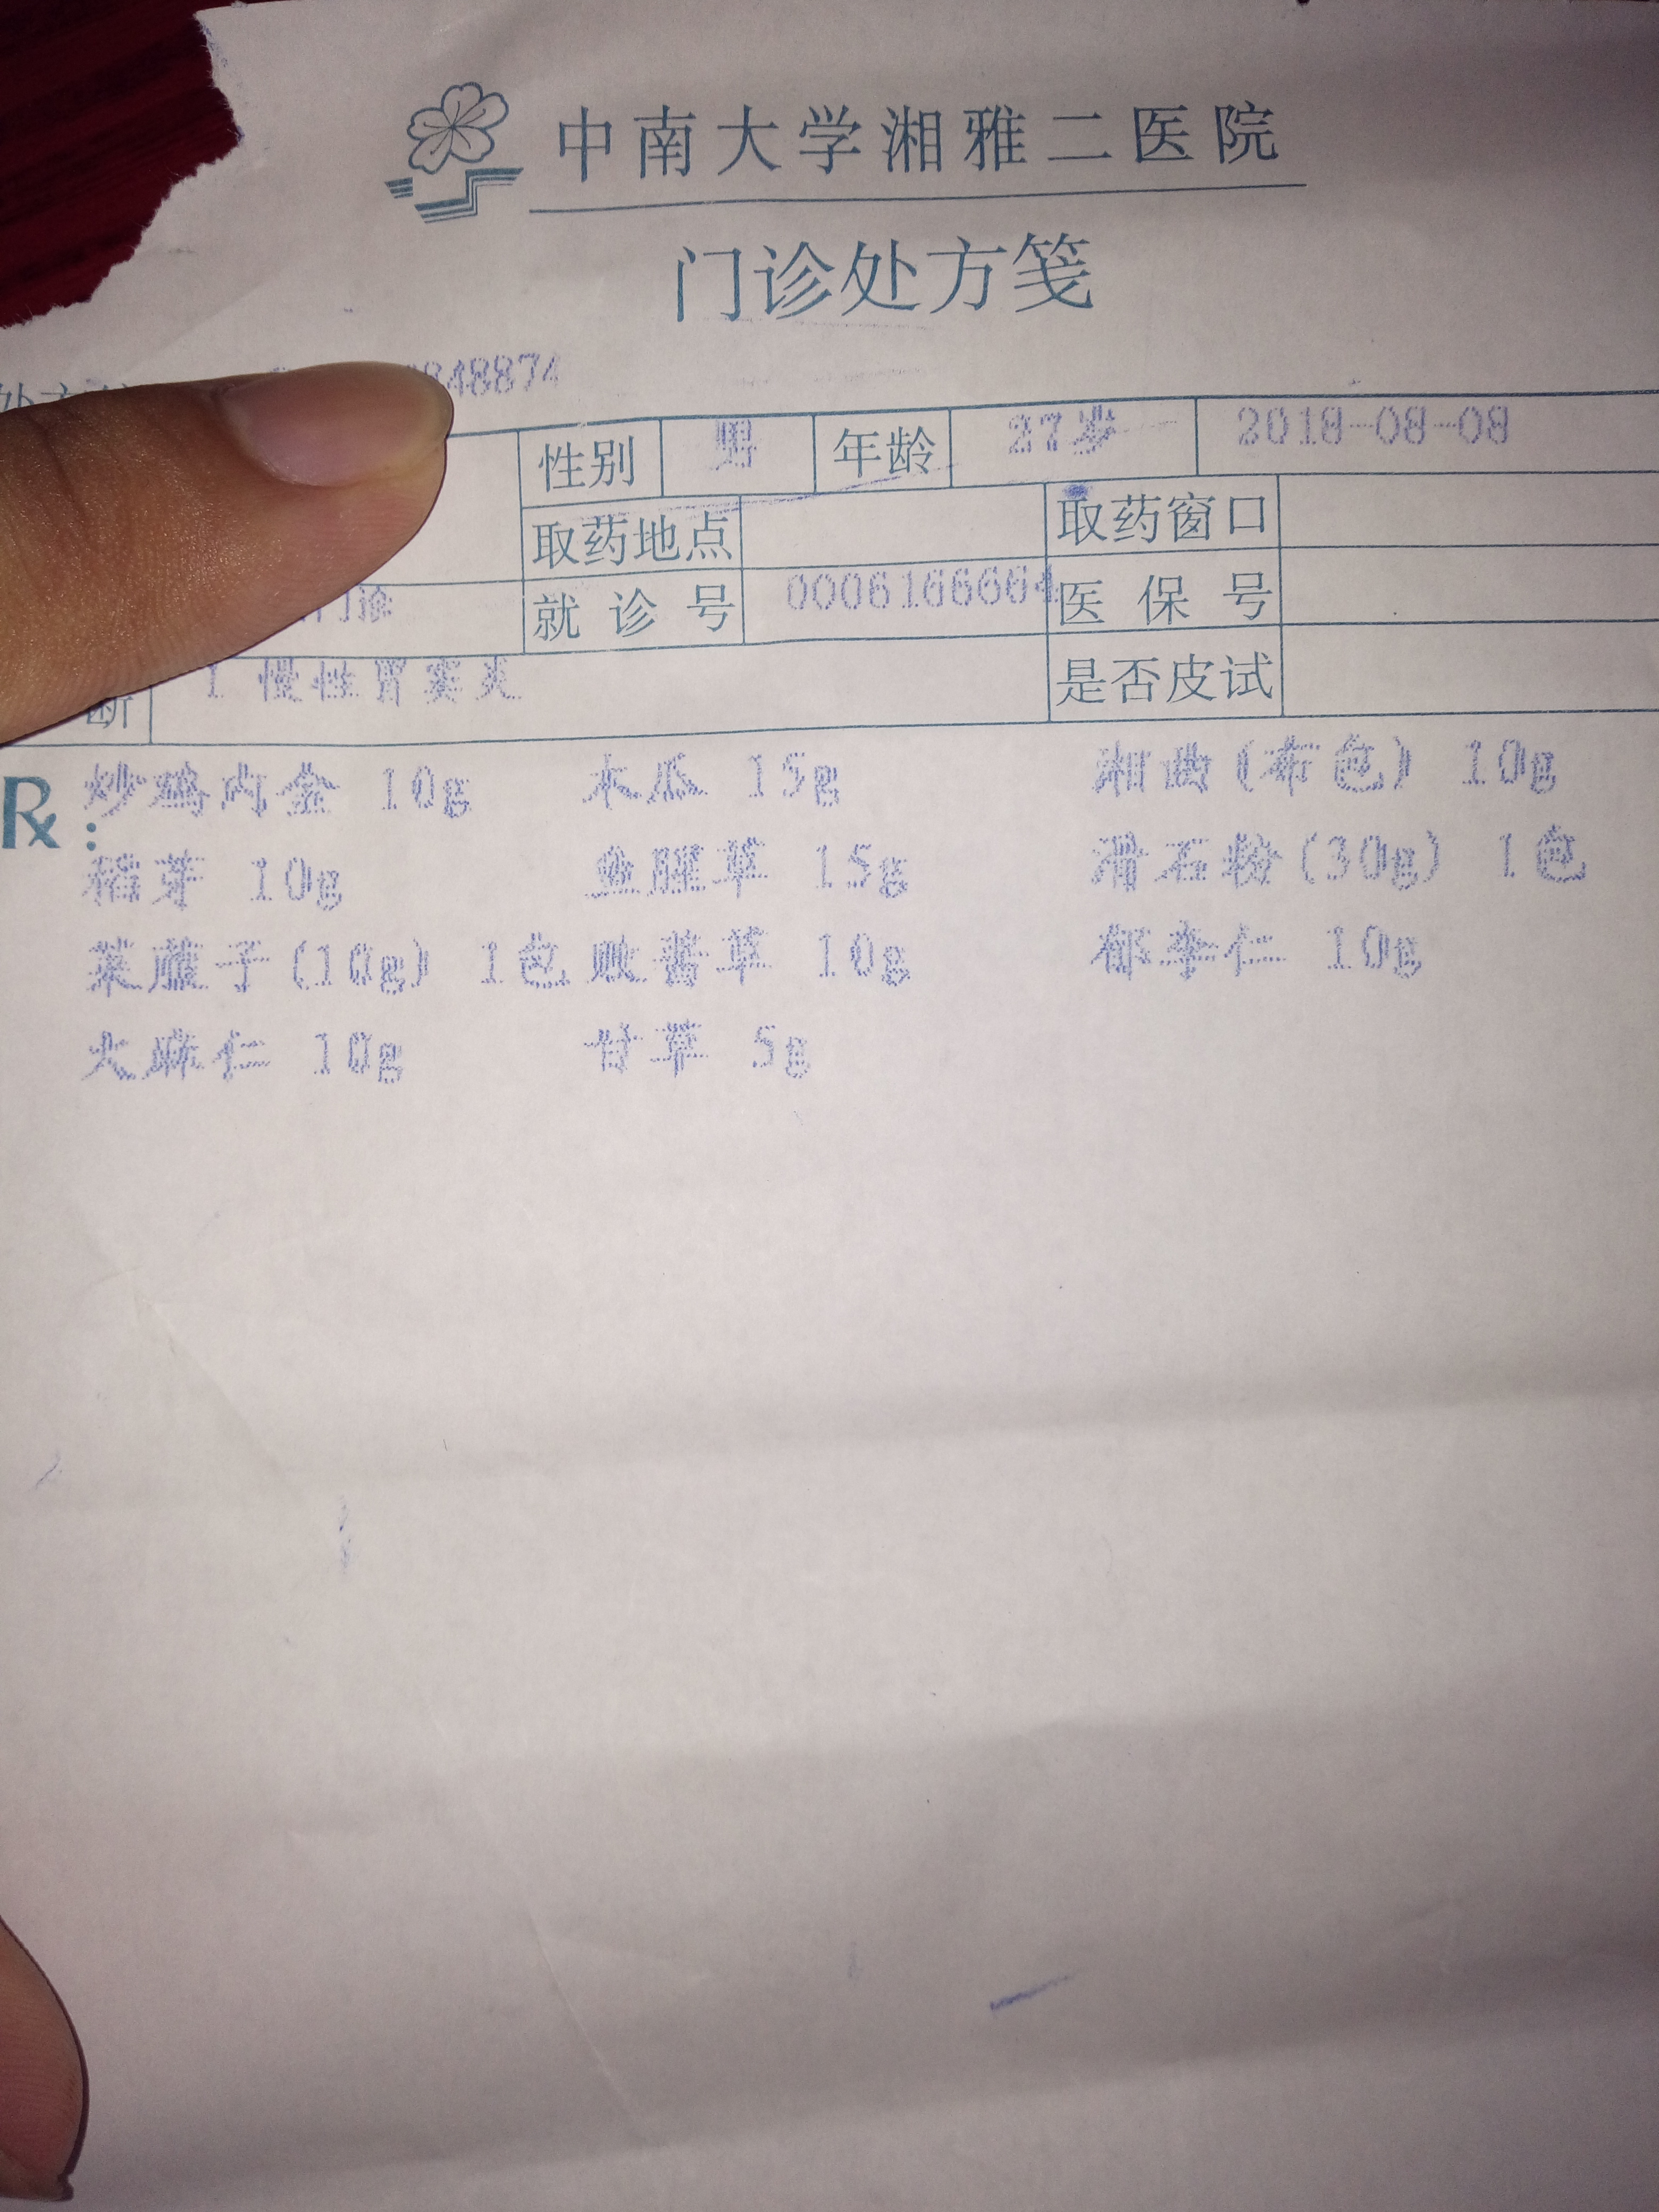 中南大学湘雅二医院
门诊处方笺
848874
性别 男 年龄 27岁 2018-08-08
取药地点 取药窗口
门诊 就诊号 0006166664 医保号
断 1 慢性胃窦炎 是否皮试
R：炒鸡内金 10g 木瓜 15g 湘曲(布包) 10g
稻芽 10g 鱼腥草 15g 滑石粉(30g) 1包
莱菔子(10g) 1包 败酱草 10g 郁李仁 10g
火麻仁 10g 甘草 5g